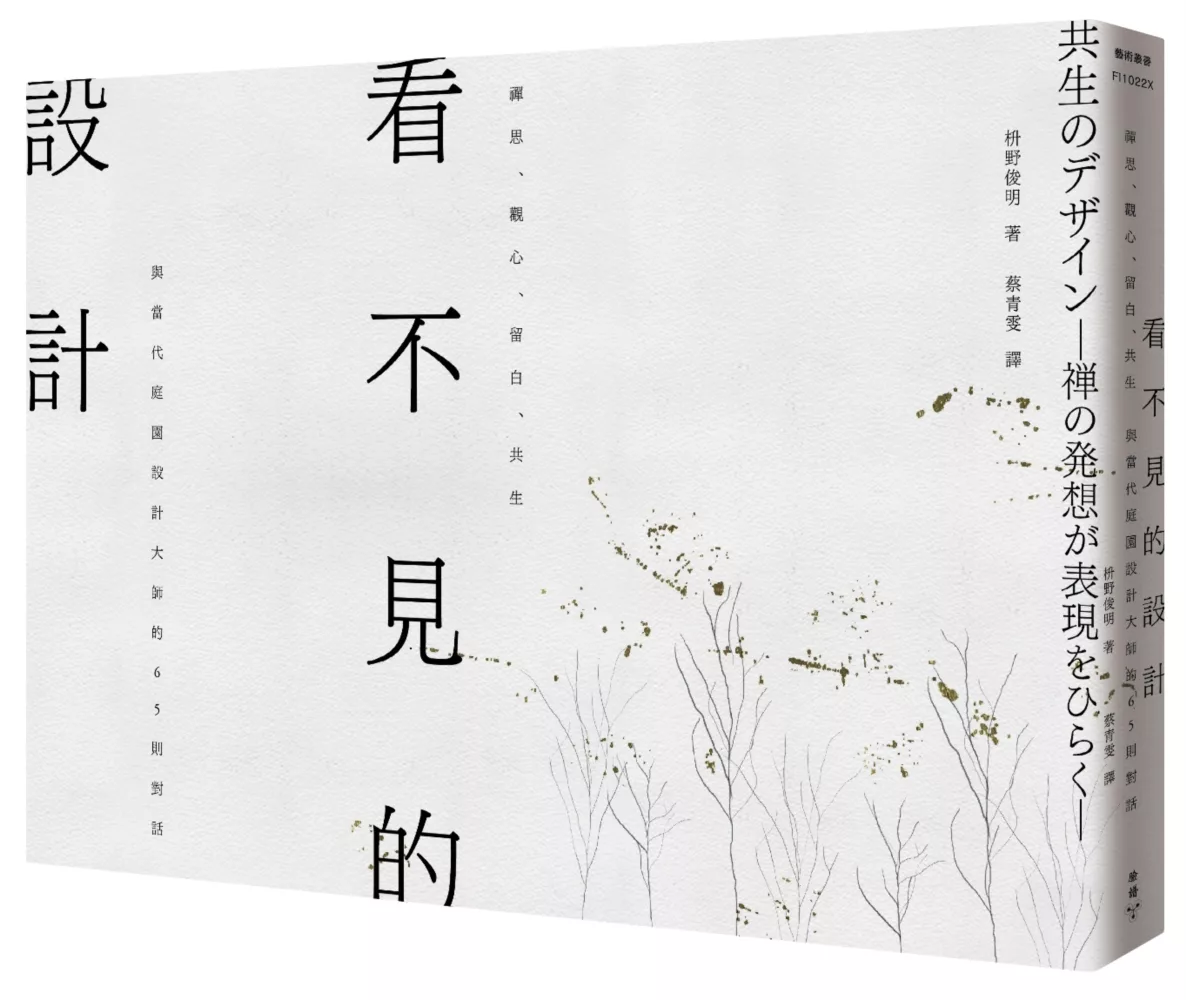 共生のデザイン—禅の発想が表現をひらく—
枡野俊明 著 蔡青雯 譯
禪思、觀心、留白、共生
看不見的
與當代庭園設計大師的65則對話
設計
藝術叢書
FI1022X
看不見的設計
禪思、觀心、留白、共生 與當代庭園設計大師的65則對話
枡野俊明 著 蔡青雯 譯
臉譜